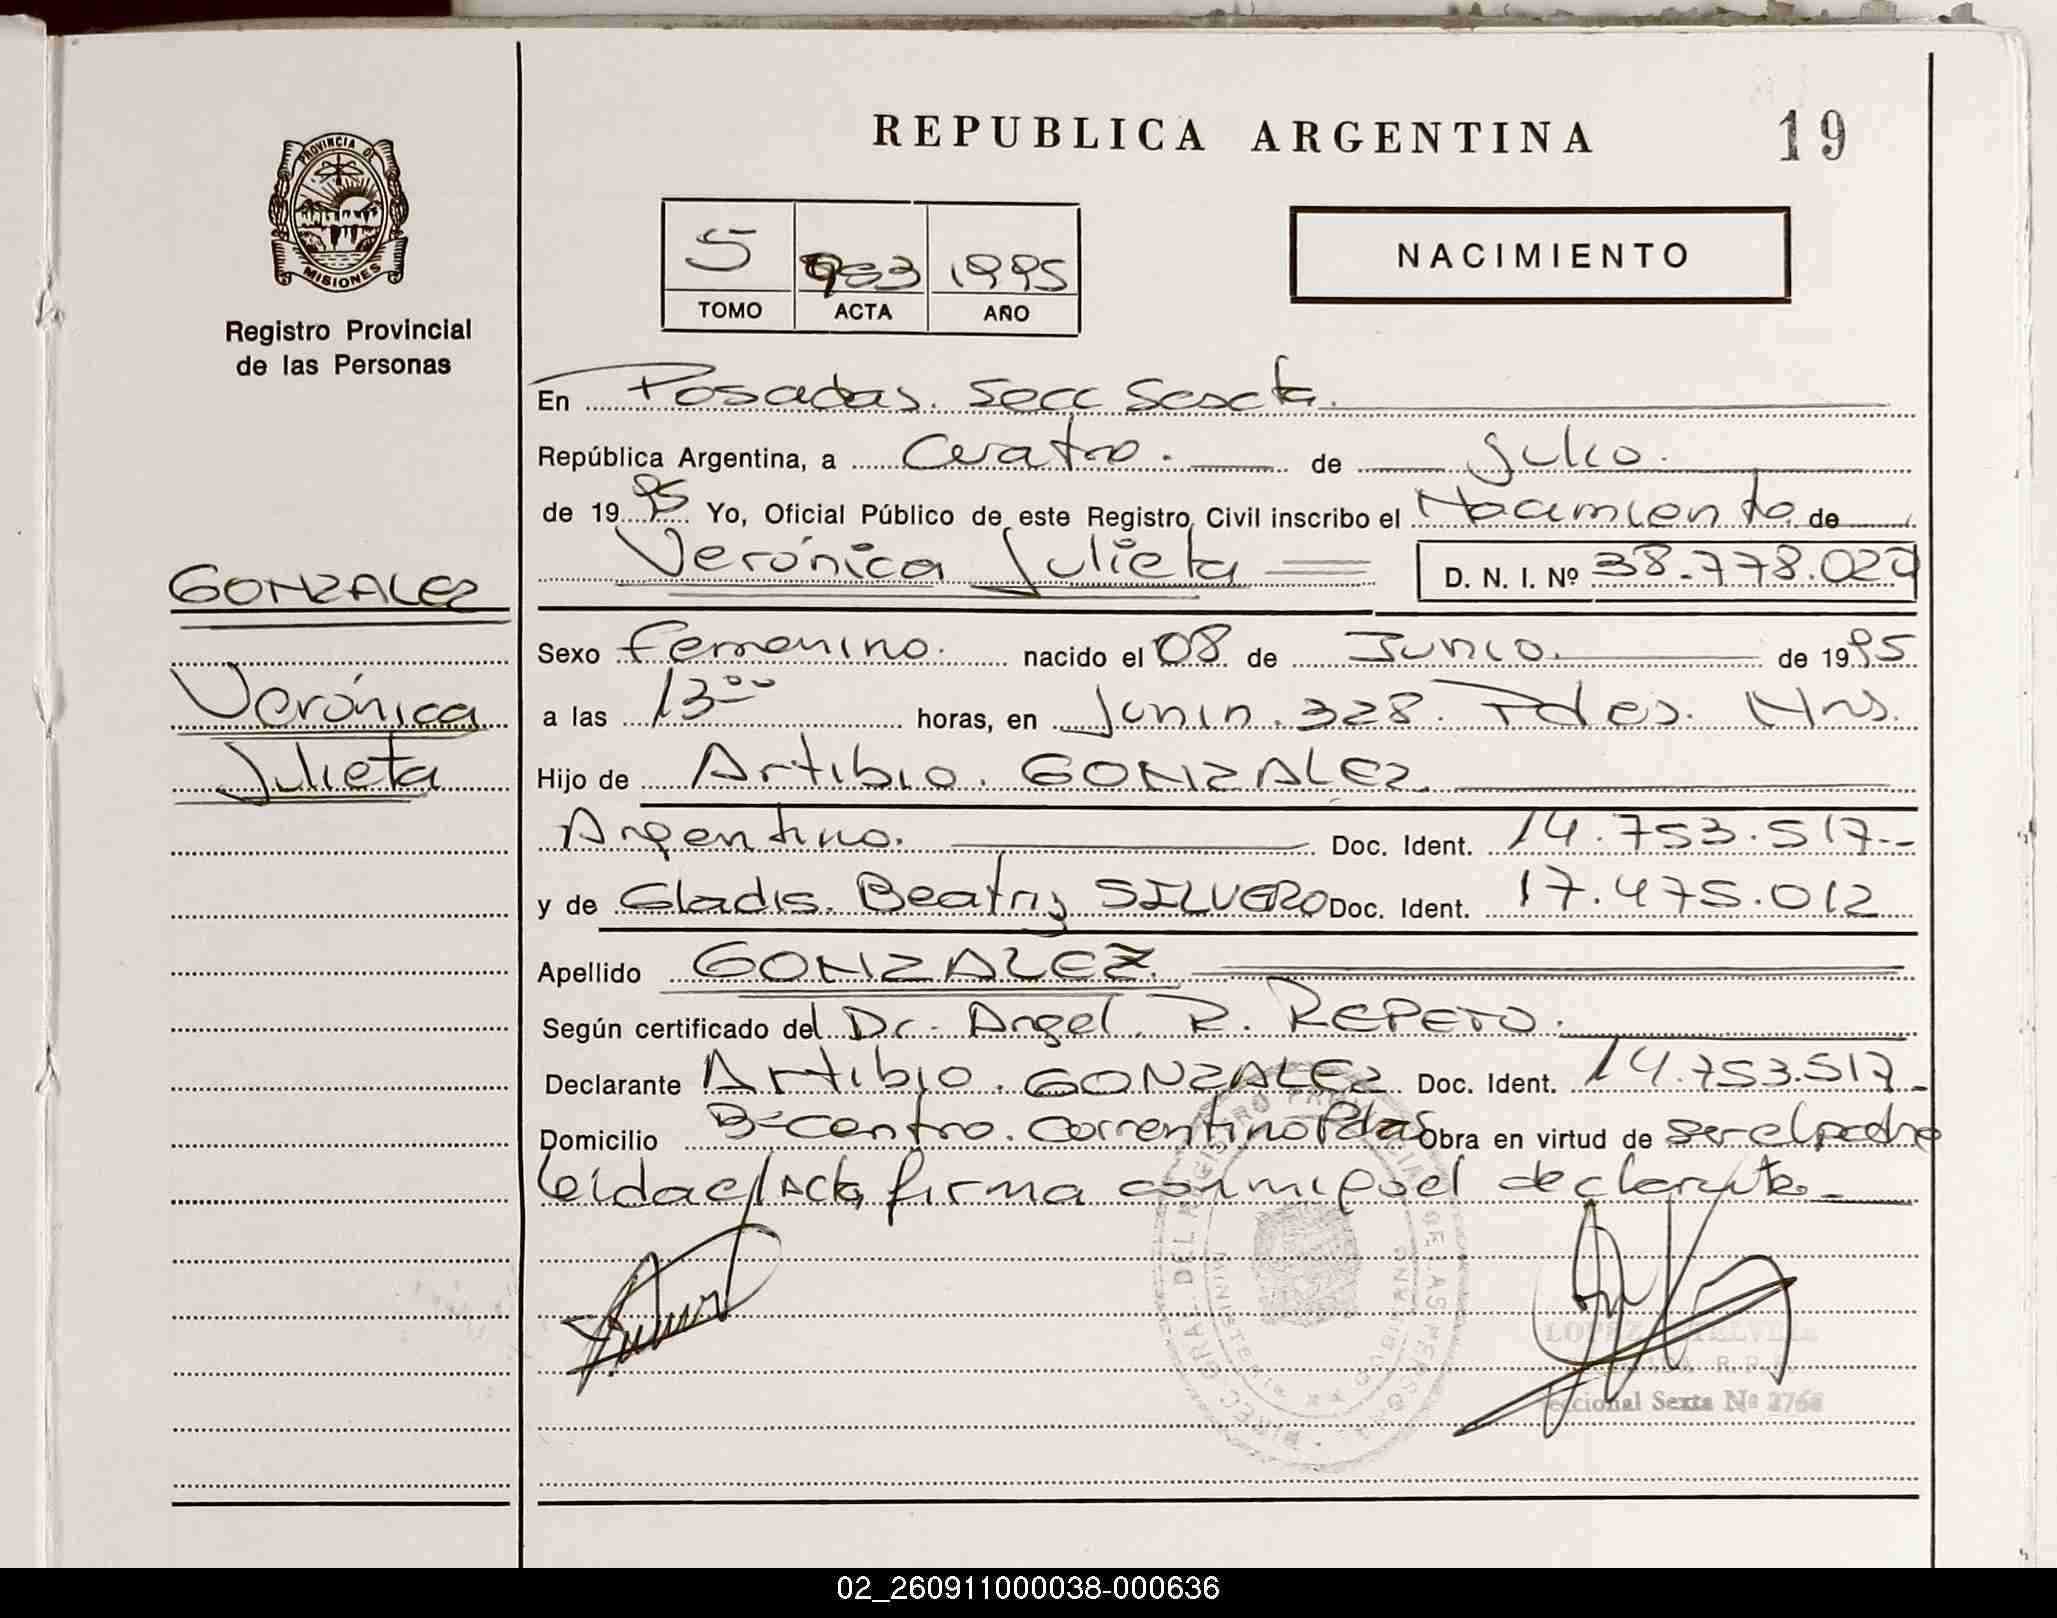 REPUBLICA ARGENTINA 19
PROVINCIA DE
MISIONES
Registro Provincial
de las Personas
5 983 1995
TOMO ACTA AÑO
NACIMIENTO
En Posadas. Secc Sexta.
República Argentina, a Cuatro. de Julio.
de 1995 Yo, Oficial Público de este Registro Civil inscribo el Nacimiento de
Verónica Julieta D. N. I. Nº 38.778.024
GONZALEZ
Verónica
Julieta
Sexo femenino. nacido el 08 de Junio. de 1995
a las 13⁰⁰ horas, en Junin. 328. Pdes. Mns.
Hijo de Artibio. GONZALEZ.
Argentino. Doc. Ident. 14.753.517.-
y de Gladis. Beatriz SILVERO Doc. Ident. 17.475.012
Apellido GONZALEZ.
Según certificado del Dr. Angel. R. REPETO.
Declarante Artibio. GONZALEZ Doc. Ident. 14.753.517-
Domicilio Bº Centro. Correntino Pdas Obra en virtud de ser el padre
Leída el Acta, firma conmigo el declarante.-
LOPEZ
R.R.
eccional Sexta Nº 2768
02_260911000038-000636